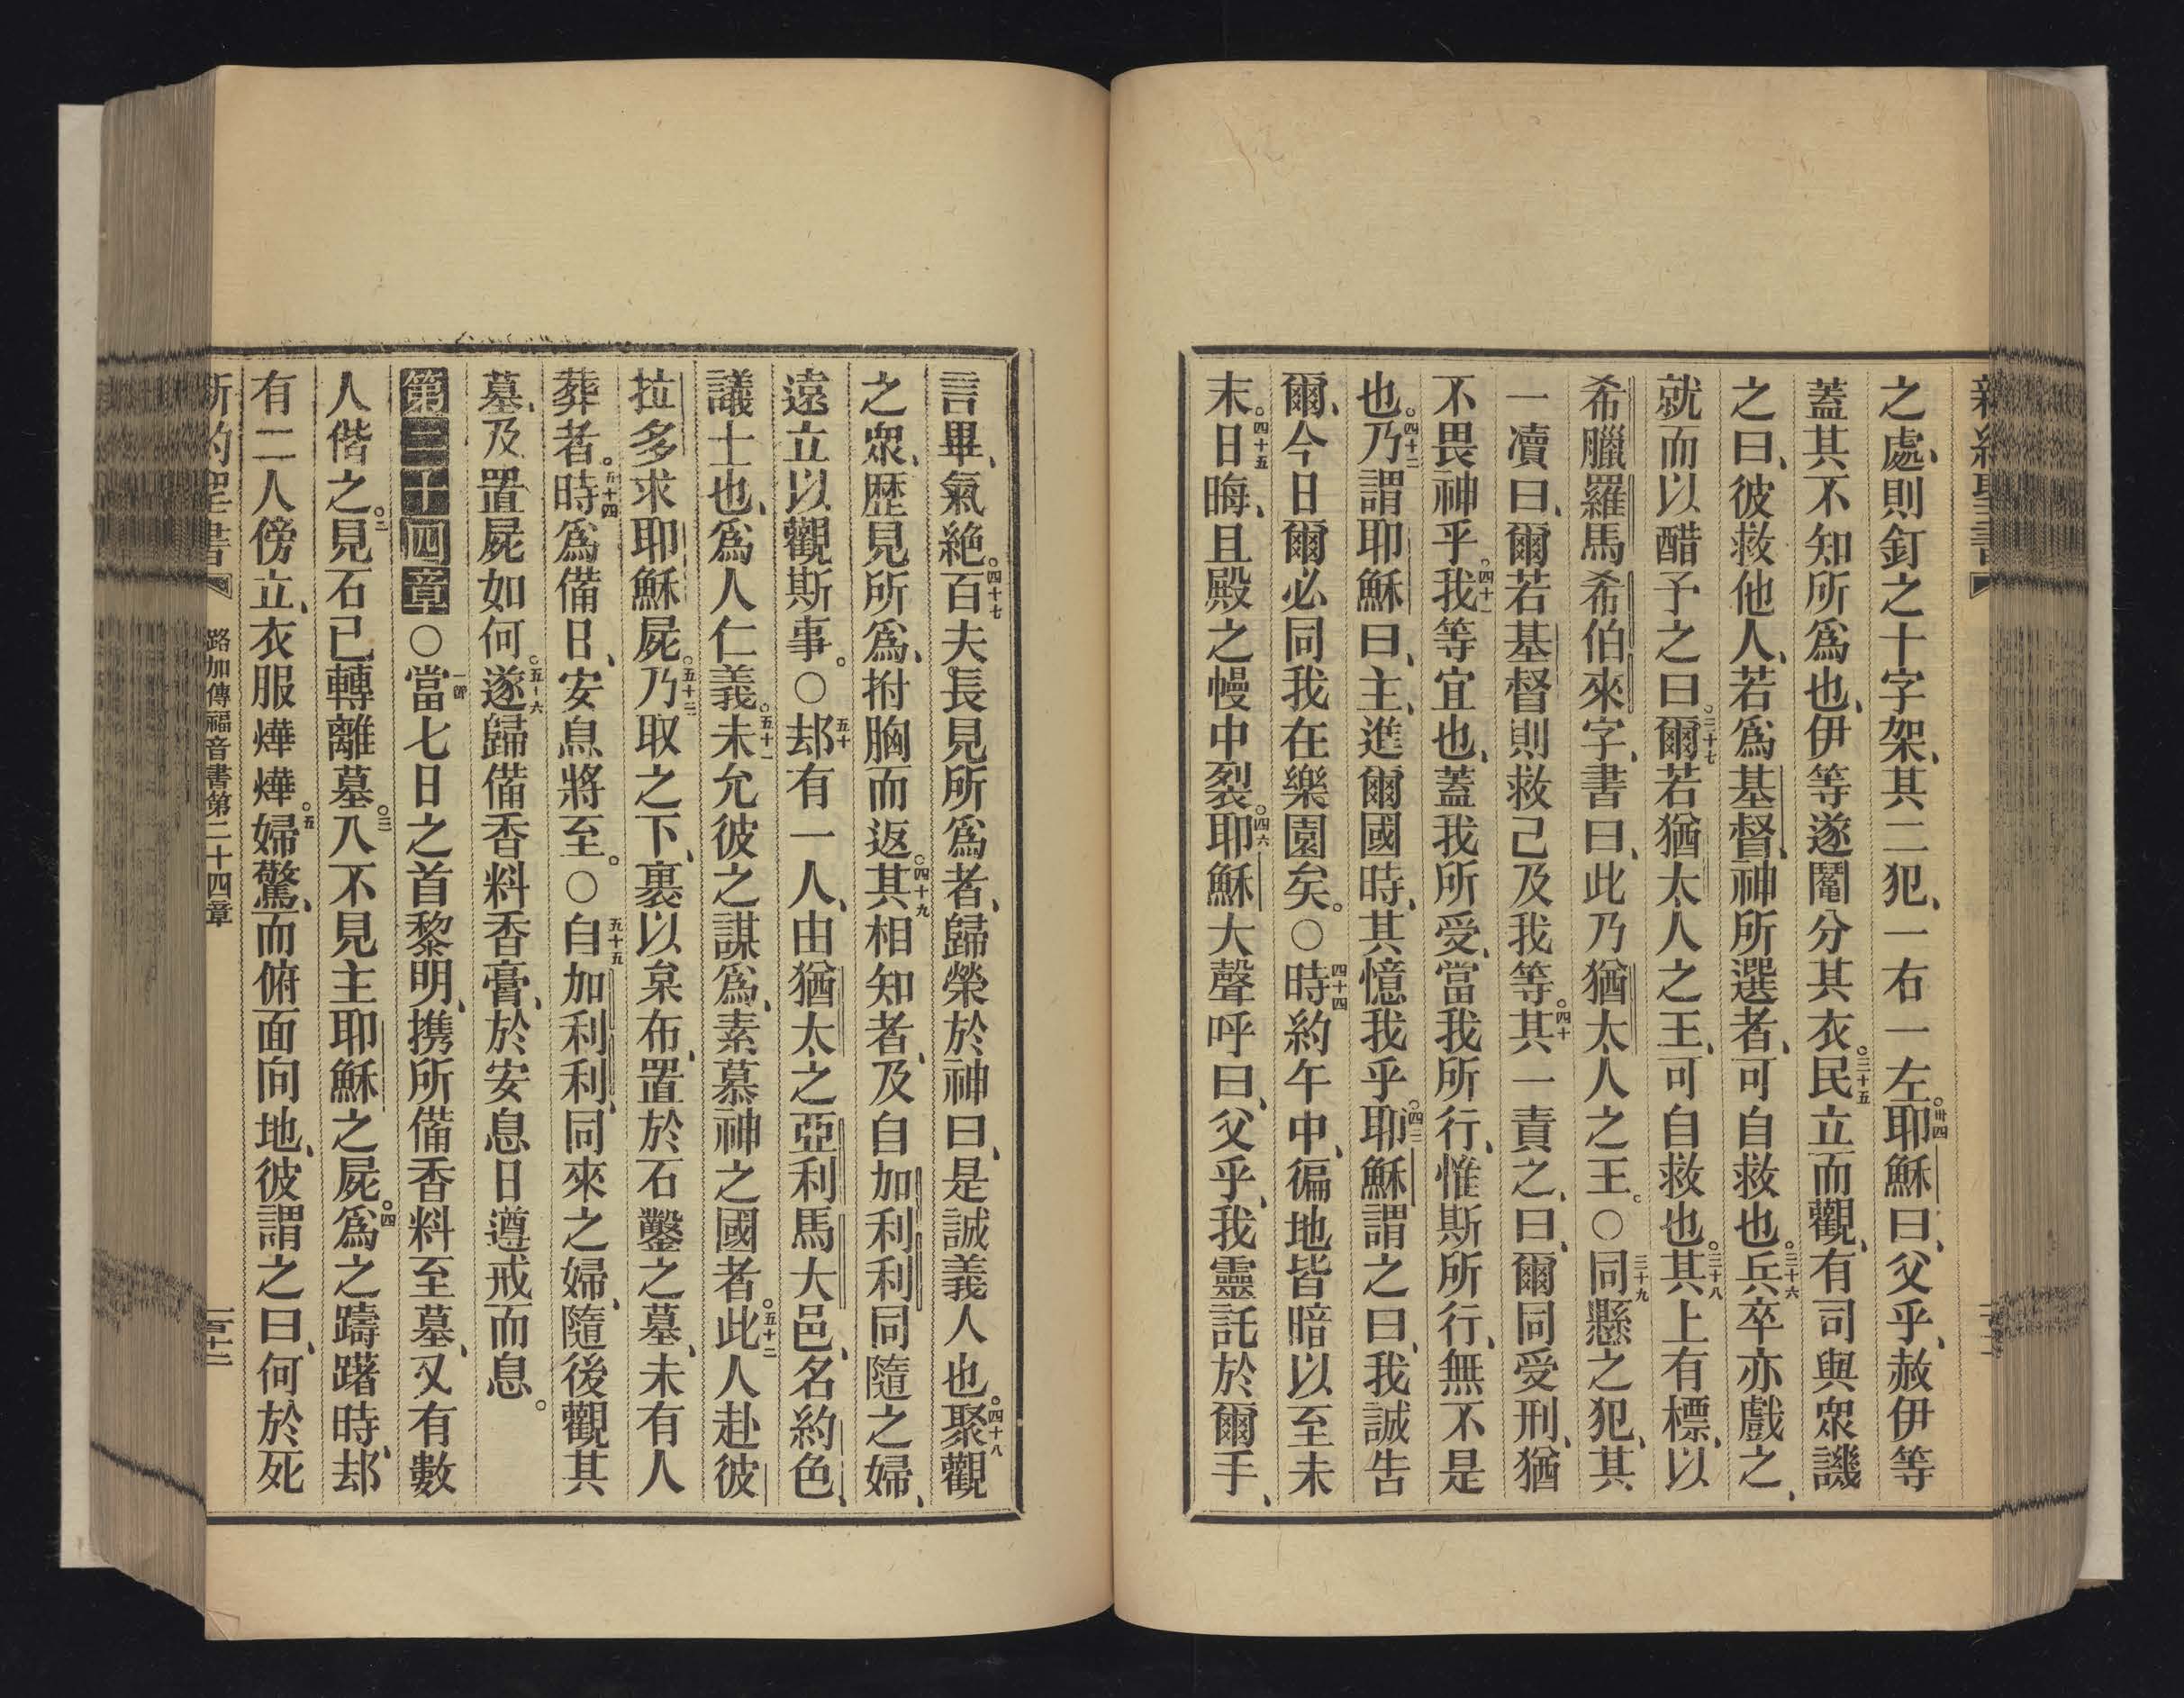 新約聖書
之處、則釘之十字架、其二犯、一右一左。卅四耶穌曰、父乎、赦伊等
蓋其不知所爲也、伊等遂鬮分其衣。三十五民立而觀、有司與眾譏
之曰、彼救他人、若爲基督、神所選者、可自救也。三十六兵卒亦戲之、
就而以醋予之曰。三十七爾若猶太人之王、可自救也。三十八其上有標、以
希臘羅馬希伯來字、書曰、此乃猶太人之王。○三十九同懸之犯、其
一凟曰、爾若基督則救己及我等。四十其一責之、曰、爾同受刑、猶
不畏神乎。四十一我等宜也、蓋我所受、當我所行、惟斯所行、無不是
也。四十二乃謂耶穌曰、主、進爾國時、其憶我乎。四三耶穌謂之曰、我誠告
爾、今日爾必同我在樂園矣。○四十四時約午中、徧地皆暗以至未
末。四十五日晦、且殿之幔中裂。四六耶穌大聲呼曰、父乎、我靈託於爾手、
言畢、氣絶。四十七百夫長見所爲者、歸榮於神曰、是誠義人也。四十八聚觀
之眾、歷見所爲、拊胸而返。四十九其相知者、及自加利利同隨之婦、
遠立以觀斯事。○五十却有一人、由猶太之亞利馬大邑、名約色、
議士也、爲人仁義。五十一未允彼之謀爲、素慕神之國者。五十二此人赴彼
拉多求耶穌屍。五十三乃取之下、裹以枲布、置於石鑿之墓、未有人
葬者。五十四時爲備日、安息將至。○五十五自加利利、同來之婦、隨後觀其
墓、及置屍如何。五十六遂歸備香料香膏、於安息日遵戒而息。
第二十四章○一當七日之首黎明、携所備香料至墓、又有數
人偕之。二見石已轉離墓。三入不見主耶穌之屍。四爲之躊躇時、却
有二人傍立、衣服燁燁。五婦驚、而俯面向地、彼謂之曰、何於死
新約聖書 路加傳福音書第二十四章 一百十二